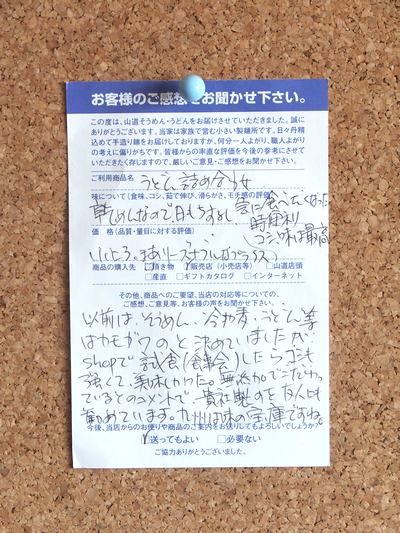 お客様のご感想をお聞かせ下さい。
この度は、山道そうめん・うどんをお届けさせていただきました。誠に
ありがとうございます。当家は家族で営む小さい製麺所です。日々丹精
込めて手造り麺をお届けしておりますが、何分一人よがり、職人よがり
の考えに偏りがちです。皆様からの率直な評価を今後の参考にさせて
いただきたく存じますので、厳しいご意見・ご感想をお聞かせ下さい。
ご利用商品名 うどん詰め合わせ
味について(食味、コシ、茹で伸び、滑らかさ、モチ感の評価)
乾めんなので日もちするし 食べたくなった
時便利
(コシ、味は最高)
価 格(品質・量目に対する評価)
いいところ。まあリーズナブルなプライス
商品の購入先 ☑頂き物 ☑販売店(小売店等) □山道店頭
□産直 □ギフトカタログ □インターネット
その他、商品へのご要望、当店の対応等についての、
ご感想、ご意見等、お客様の声をお聞かせ下さい。
以前は、そうめん、冷や麦、うどん等
はカモガワのと決めていましたが
shopで試食()したらコシも
強くて、美味しかった。無添加でこだわって
いるとのコメントで貴社製のを友人にも
勧めています。九州は味の宝庫ですね。
今後、当店からのお便りや商品のご案内をお送りしてもよろしいでしょうか?
☑送ってもよい □必要ない
ご協力ありがとうございました。